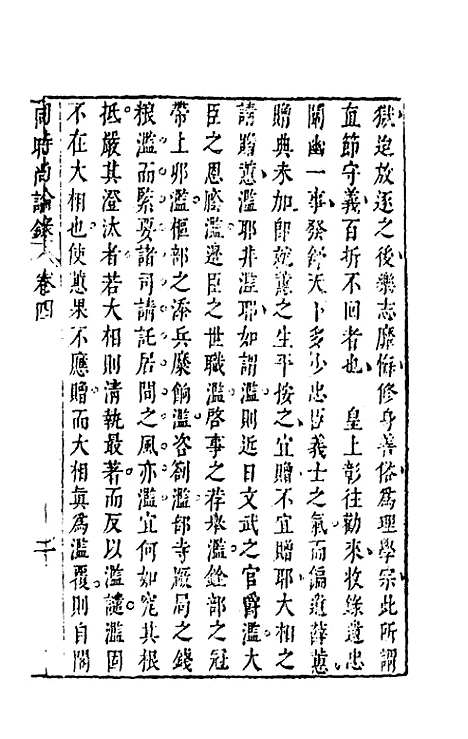 獄迫放逐之後樂志靡悔修身善俗為理學宗此所謂
直節守義百折不回者也　皇上彰往勸來收錄遺忠
闡幽一事發舒天下多少忠臣義士之氣而偏遺薛蕙
贈典未加即婉蕙之生平按之宜贈不宜贈耶大相之
請贈蕙濫耶非濫耶如謂濫則近日文武之官爵濫大
臣之恩廕濫邊臣之世職濫啓事之荐舉濫銓部之冠
帶上卯濫樞部之添兵糜餉濫咨劄濫部寺厰局之錢
根濫而緊要諸司請託居間之風亦濫宜何如究其根
抵嚴其澄汰者若大相則清執最著而反以濫謎濫固
不在大相也使蕙果不應贈而大相真為濫覆則自閣
同時尚論錄　卷四　二